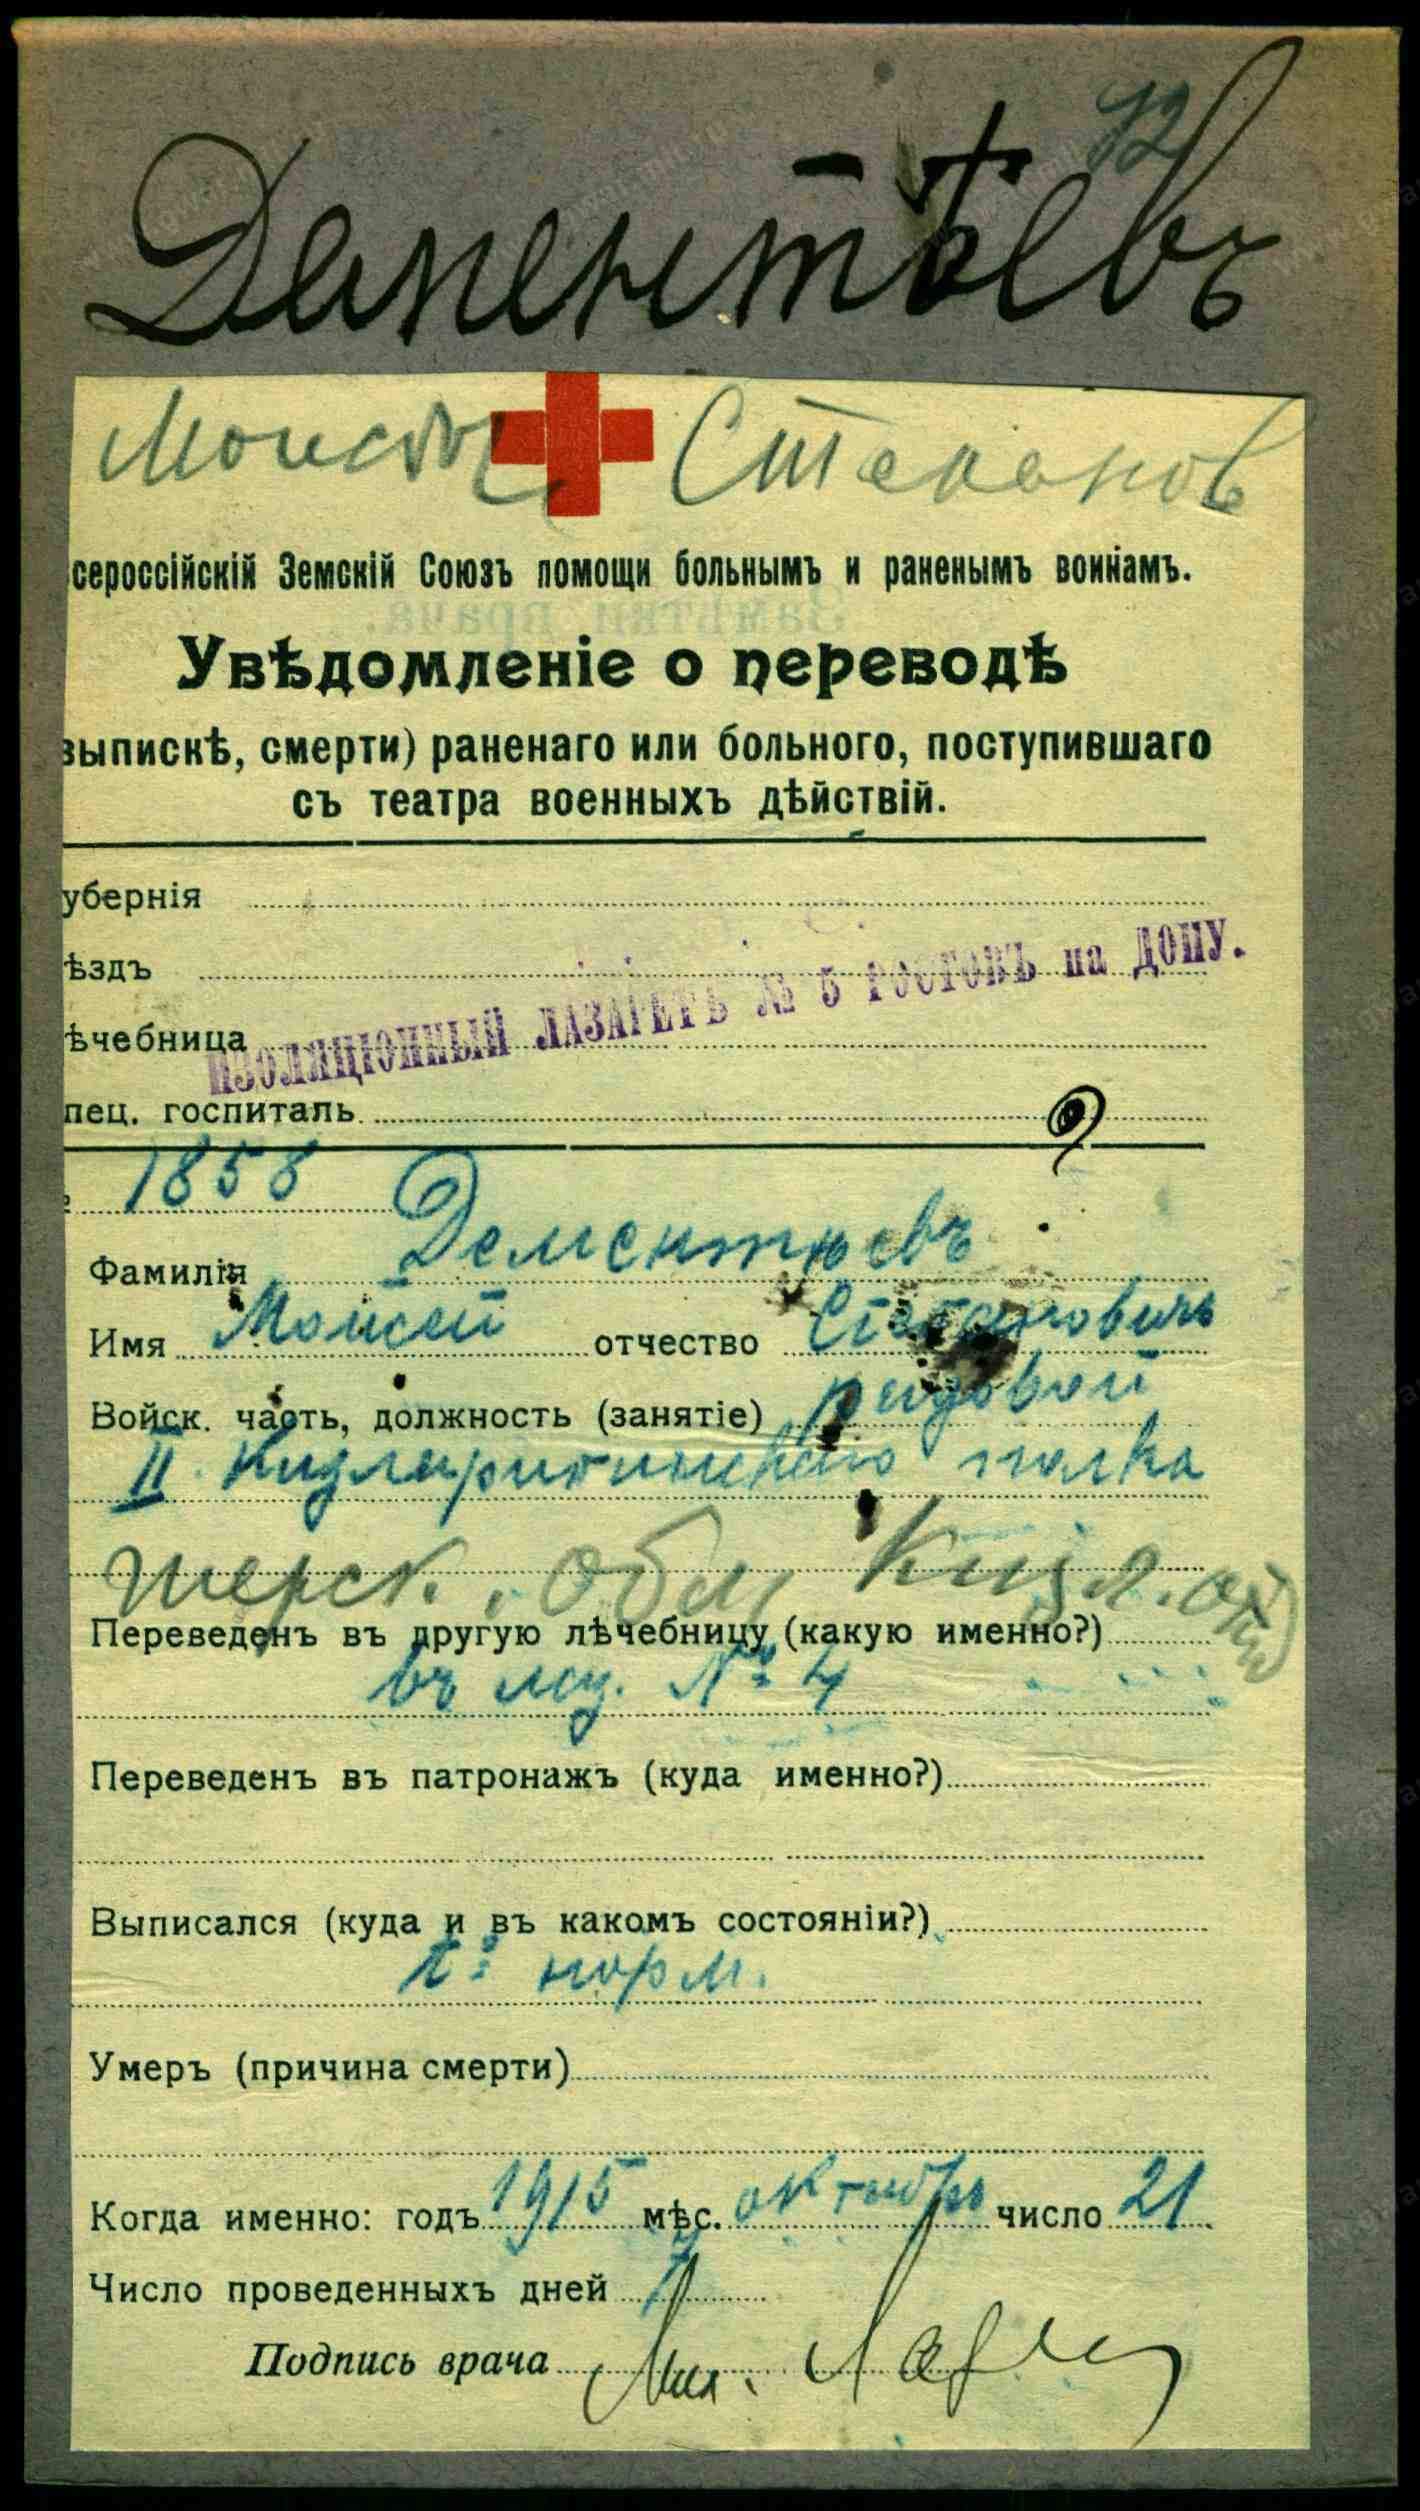 12
Дементьевъ
Моисей Степанов
сероссійскій Земскій Союзъ помощи больнымъ и раненымъ воинамъ.
Увѣдомленіе о переводѣ
выпискѣ, смерти) раненаго или больного, поступившаго
съ театра военныхъ дѣйствій.
убернія
ѣздъ
ИЗОЛЯЦІОННЫЙ ЛАЗАРЕТЪ № 5 РОСТОВЪ на ДОНУ.
ѣчебница
пец. госпиталь
1858
Фамилія Дементьевъ
Имя Моисей отчество Степановичъ
Войск. часть, должность (занятіе) рядовой
II Кизляро полка
терск. обл. Кизл. отд
Переведенъ въ другую лѣчебницу (какую именно?)
въ лаз. № 4
Переведенъ въ патронажъ (куда именно?)
Выписался (куда и въ какомъ состояніи?)
t° норм.
Умеръ (причина смерти)
Когда именно: годъ 1915 мѣс. октябрь число 21
Число проведенныхъ дней
Подпись врача